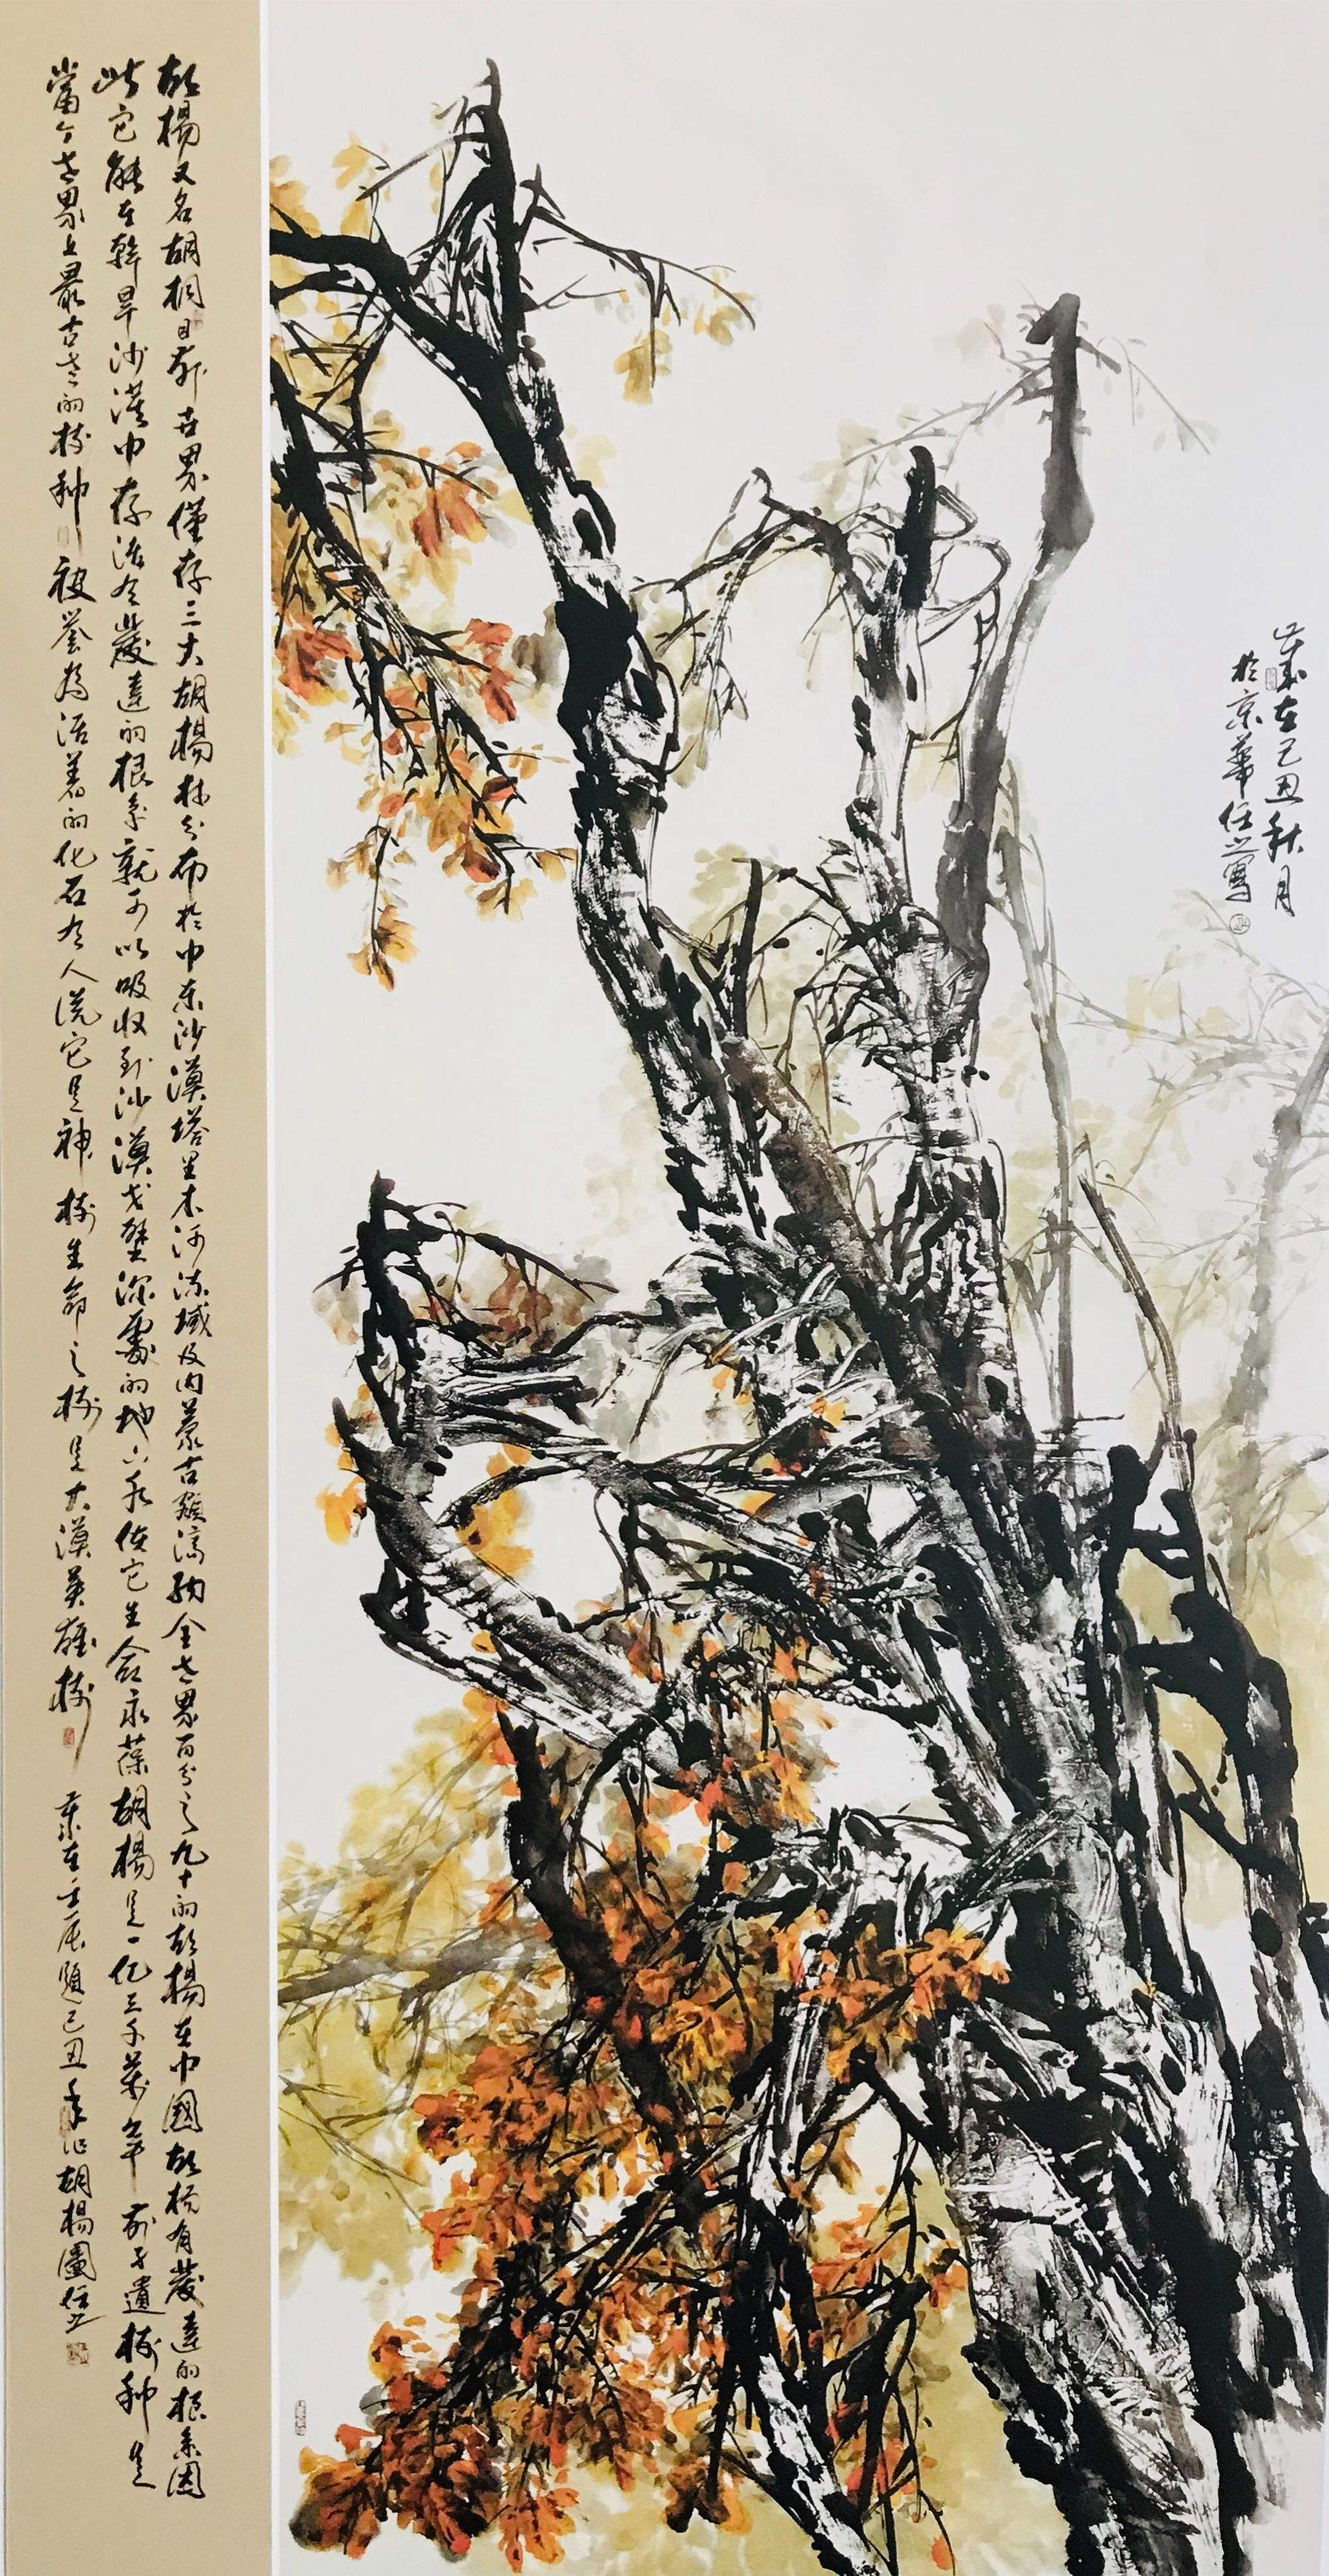 胡楊又名胡桐目前世界僅存三大胡楊林分布於中東沙漠塔里木河流域及内蒙古額濟納全世界百分之九十的胡楊在中國胡楊有發達的根系因
此它能在幹旱沙漠中存活有發達的根系就可以吸收到沙漠戈壁深處的地下水使它生命永葆胡楊是一亿三千萬年前子遺樹种是
當今世界上最古老的樹种被誉為活着的化石有人说它是神樹生命之樹是大漠英雄樹 歲在壬辰題己丑年作胡楊圖任之
歲在己丑秋月
於京華任之寫